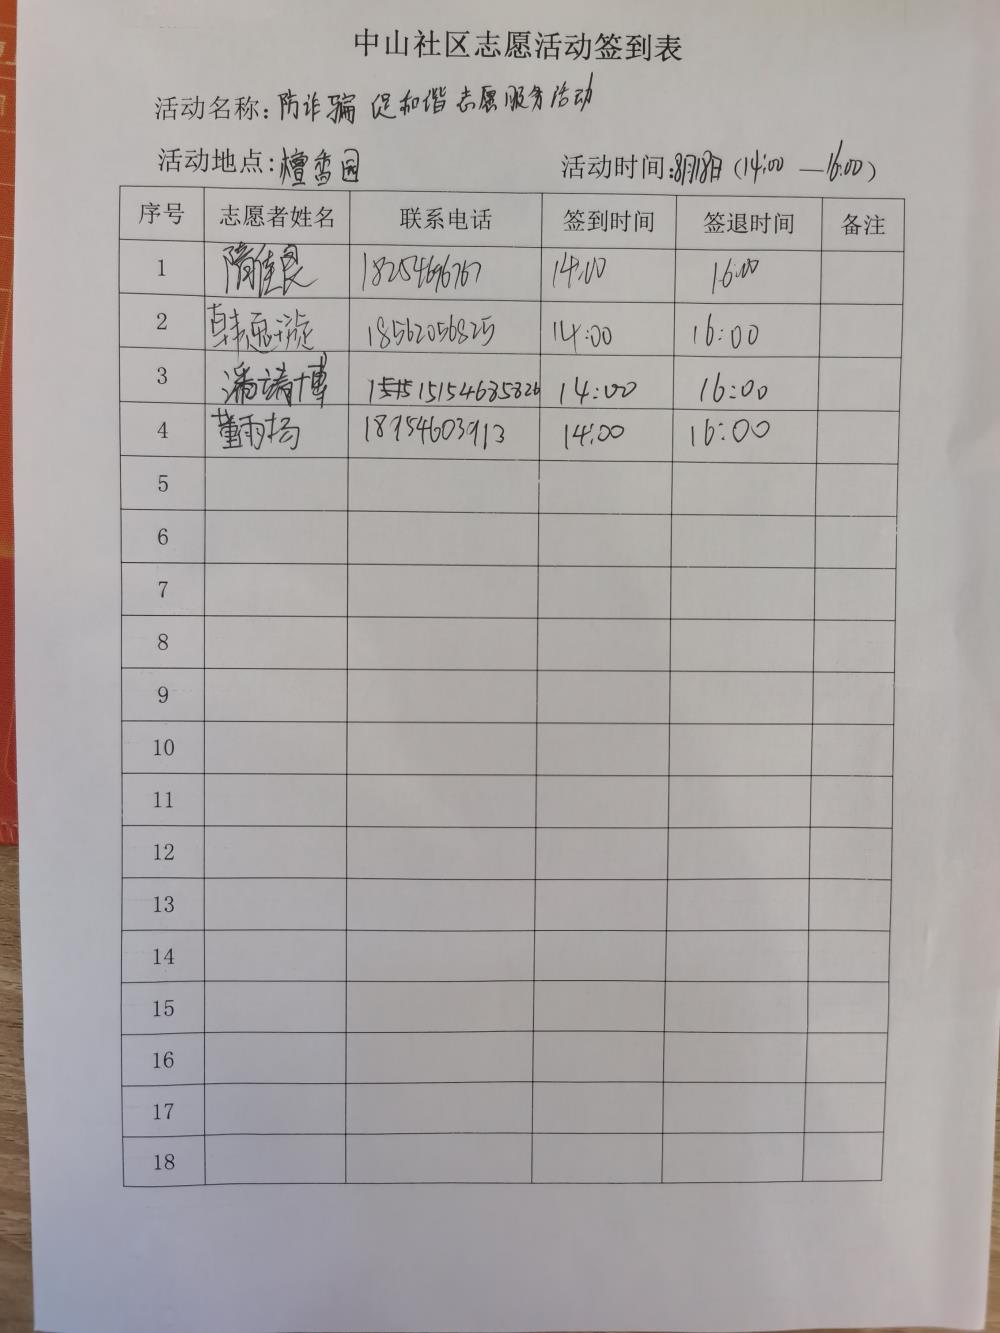 中山社区志愿活动签到表
活动名称: 防诈骗 促和谐 志愿服务活动
活动地点: 檀香园 活动时间: 8月18日 (14:00 — 16:00)
序号 志愿者姓名 联系电话 签到时间 签退时间 备注
1 隋佳良 18254696767 14:00 16:00
2 韩 18562056825 14:00 16:00
3 潘靖博 14:00 16:00
4 董雨扬 18954603913 14:00 16:00
5
6
7
8
9
10
11
12
13
14
15
16
17
18